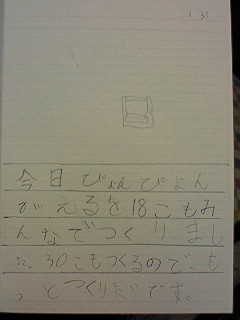 1 31
今日 ぴょんぴょん
がえるを18こもみ
んなでつくりまし
た。30こもつくるので、も
っとつくりたいです。